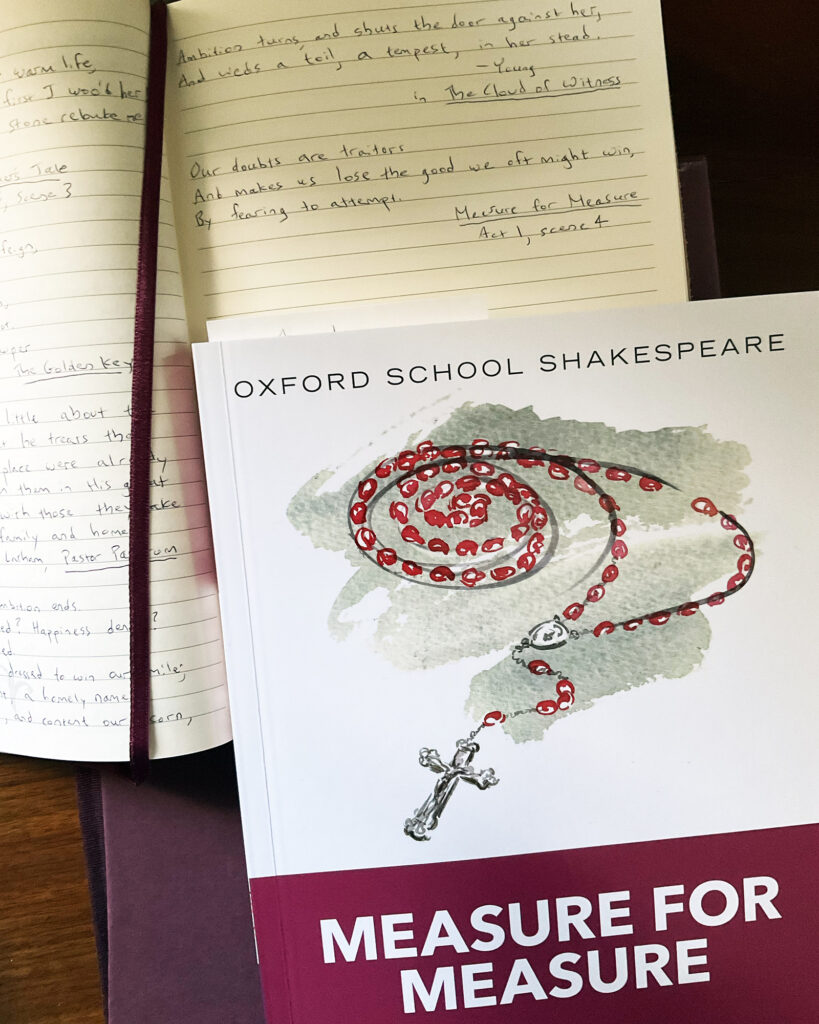 warm life,
first I woo'd her
stone rebuke me
Tale
Scene 3
feign,
The Golden Key
little about
he treats
place were already
them in His great
those they
family and home
Pastor
ends.
Happiness
dressed to win our
a homely name
and content our
Ambition turns, and shuts the door against her,
And weds a toil, a tempest, in her stead.
— Young
in The Cloud of Witness
Our doubts are traitors
And makes us lose the good we oft might win,
By fearing to attempt.
Measure for Measure
Act 1, scene 4
OXFORD SCHOOL SHAKESPEARE
MEASURE FOR
MEASURE